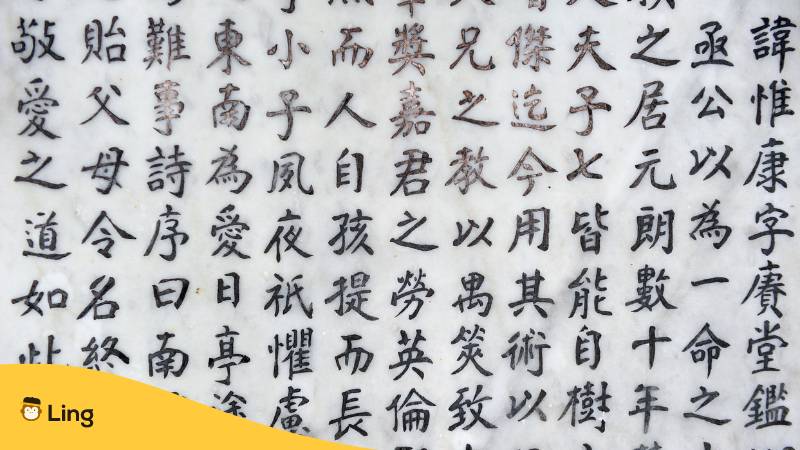 諱惟康字賡堂鑑
亟公以為一命之
之居元朗數十年
夫子七皆能自樹
傑迄今用其術以
兄之教以禺筴致
獎嘉君之勞英倫
而人自孩提而長
小子夙夜祇懼慮
東南為愛日亭
難事詩序曰南
貽父母令名終
敬愛之道如此
Ling